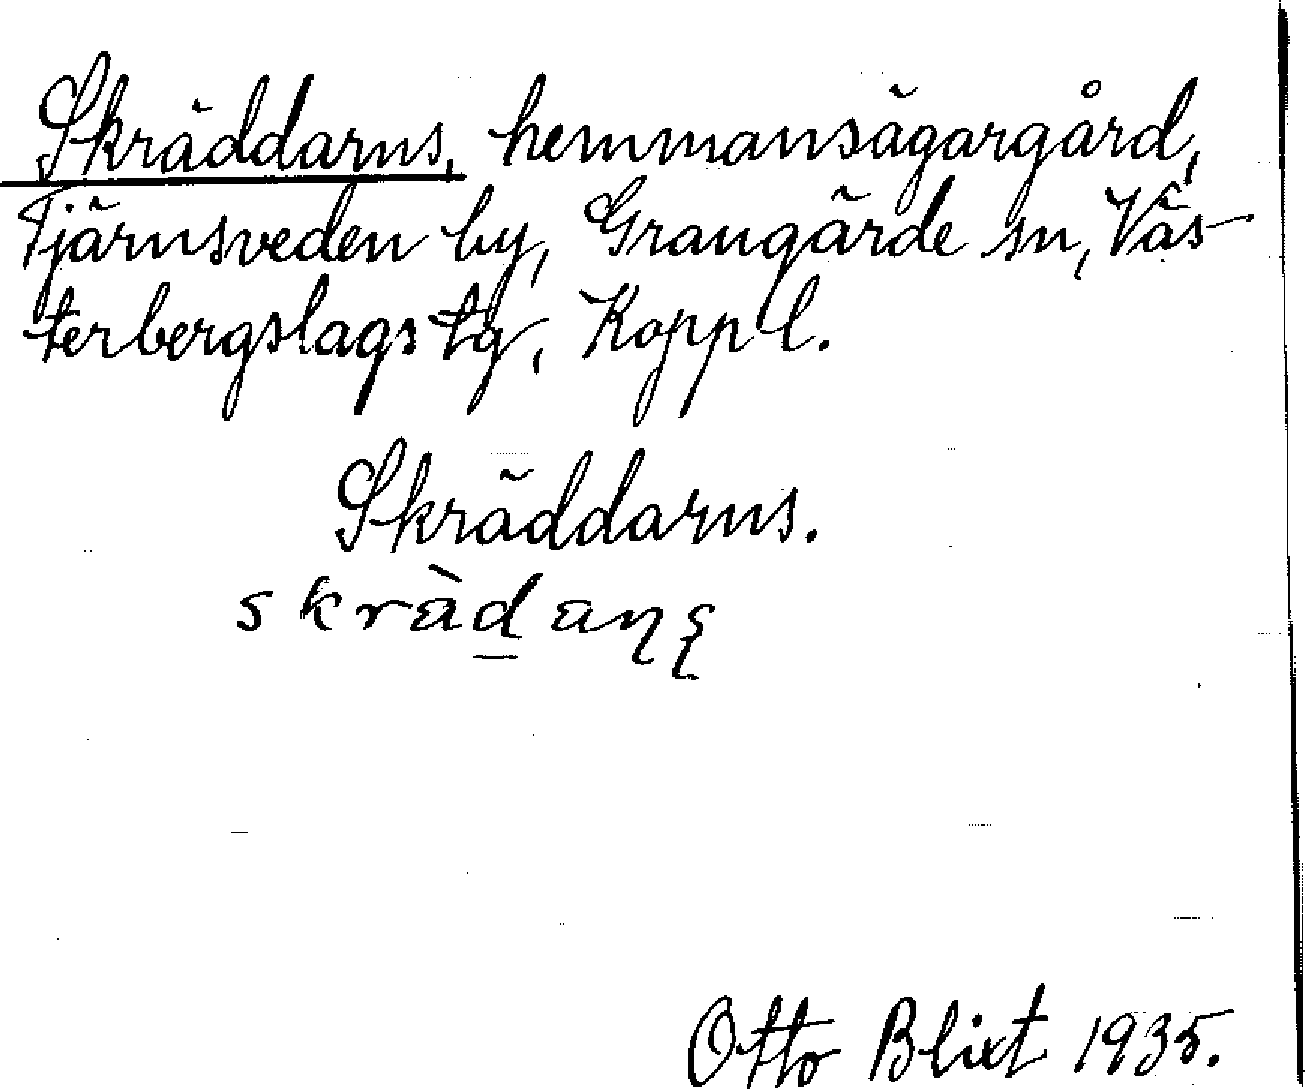 Skräddarns, hemmansägargård,
Tjärnsveden by, Grangärde sn, Väs-
terbergslags tg, Kopp l.
Skräddarns.
skràd̲aɳȿ
Otto Blixt 1935.